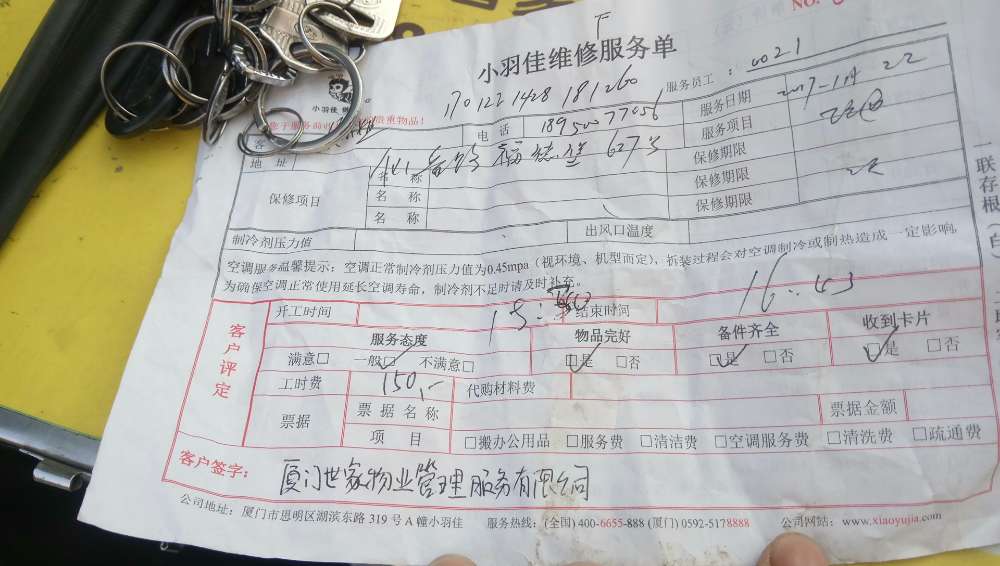 NO.
小羽佳维修服务单
170122 1428 181260
服务员工：0021
小羽佳
电话 18950077056
服务日期 2017-1月22
地址
627号
服务项目
保修项目
名称
保修期限
名称
保修期限
名称
保修期限
制冷剂压力值
出风口温度
空调服务温馨提示：空调正常制冷剂压力值为0.45mpa（视环境、机型而定），拆装过程会对空调制冷或制热造成一定影响，
为确保空调正常使用延长空调寿命，制冷剂不足时请及时补充。
一联存根（白）
客户评定
开工时间
结束时间 16:43
服务态度 物品完好 备件齐全 收到卡片
满意□ 一般□ 不满意□ □是 □否 □是 □否 □是 □否
工时费 150,- 代购材料费
票据 票据名称 票据金额
项目 □搬办公用品 □服务费 □清洁费 □空调服务费 □清洗费 □疏通费
客户签字： 厦门世家物业管理服务有限公司
公司地址：厦门市思明区湖滨东路 319 号 A 幢小羽佳 服务热线：(全国) 400-6655-888 (厦门) 0592-5178888 公司网站：www.xiaoyujia.com